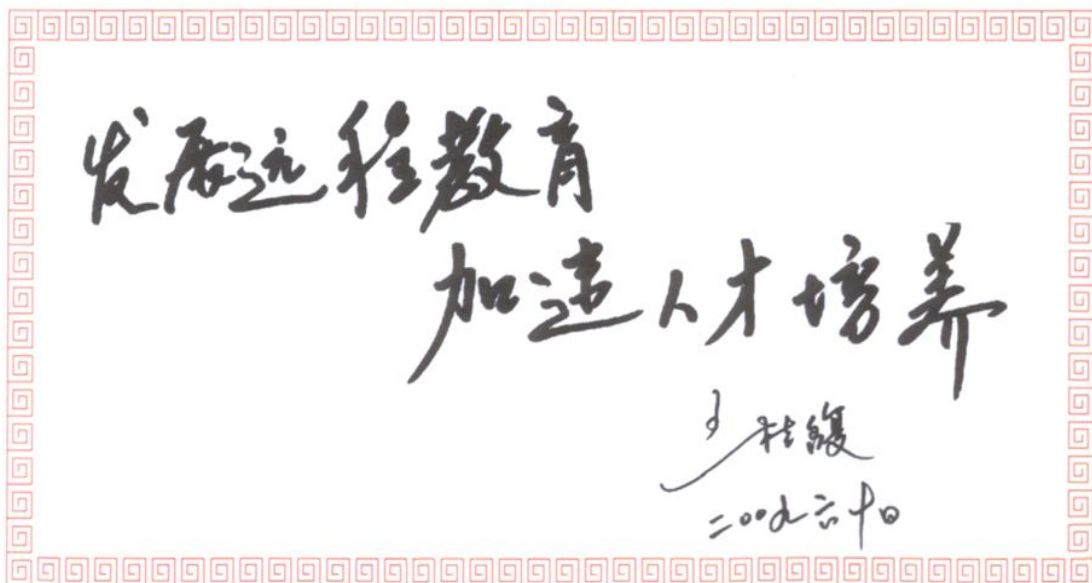 发展远程教育
加速人才培养
二〇〇九六十日